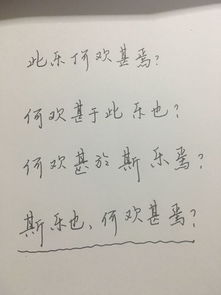 此乐何欢甚焉?
何欢甚于此乐也?
何欢甚於斯乐焉?
斯乐也,何欢甚焉?